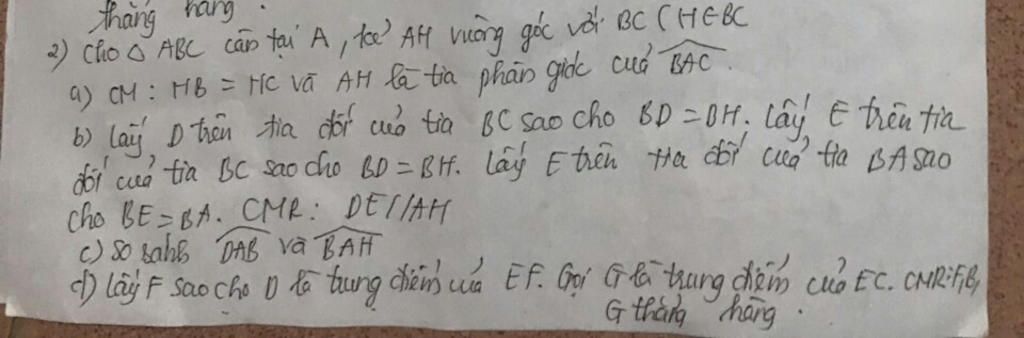 thẳng hàng.
2) Cho △ ABC cân tại A, kẻ AH vuông góc với BC (H∈BC
a) CM: HB = HC và AH là tia phân giác của \widehat{BAC}.
b) lấy D trên tia đối của tia BC sao cho BD = BH. Lấy E trên tia
đối của tia BC sao cho BD = BH. Lấy E trên tia đối của tia BA sao
cho BE = BA. CMR: DE // AH
c) So sánh \widehat{DAB} và \widehat{BAH}
d) Lấy F sao cho D là trung điểm của EF. Gọi G là trung điểm của EC. CMR: F, B,
G thẳng hàng.